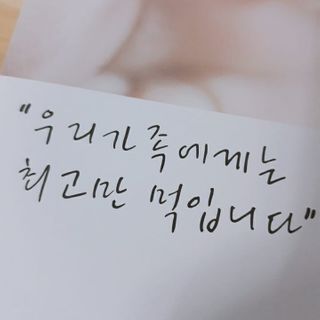 "우리가족에게는
최고만 먹입니다"